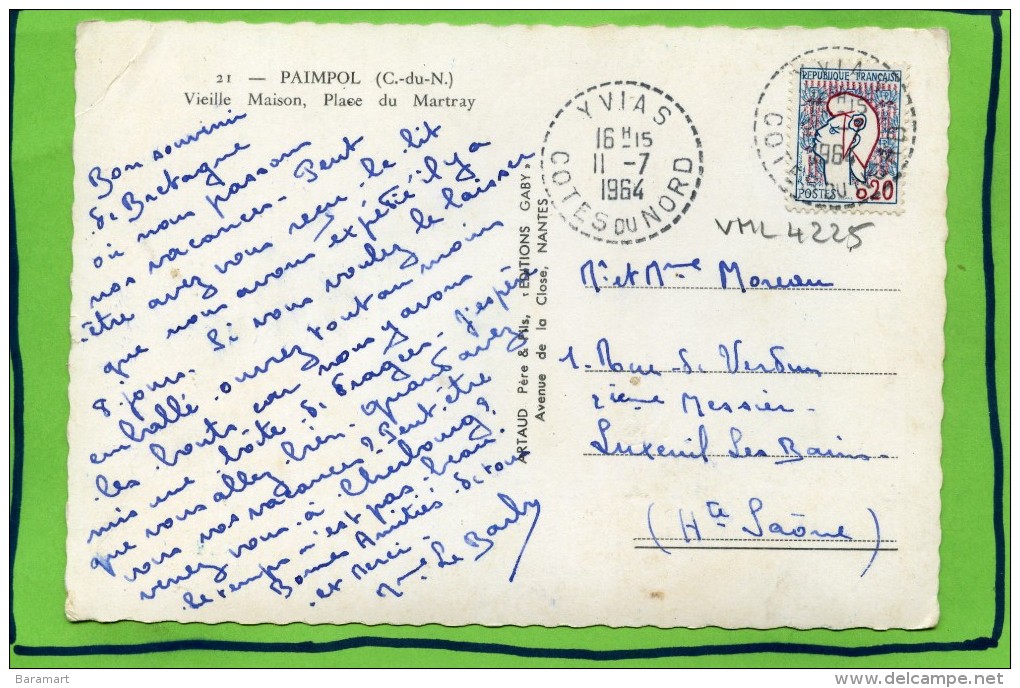 21 — PAIMPOL (C.-du-N.)
Vieille Maison, Place du Martray
Bon souvenir
de Bretagne
où nous passons
nos vacances. Peut
être avez vous reçu le lit
que nous avons expédié il y a
8 jours. Si vous voulez le laisser
emballé. ouvrez tout au moins
les bouts. car nous y avons
mis une boîte de Dragées. J'espère
que vous allez bien. Quand avez
vous vos vacances? Peut être
venez vous à Cherbourg?
Le temps n'est pas beau.
Bonnes Amitiés de tous
et Merci -
Mme Le Barby
ARTAUD Père & Fils, « EDITIONS GABY »
Avenue de la Close, NANTES
YVIAS
16 H 15
11 -7
1964
COTES DU NORD
YVIAS
1964
COTES DU NORD
REPUBLIQUE FRANÇAISE
POSTES
0,20
VML 4225
Mr et Mme Moreau
1. Rue de Verdun
2ième Messier -
Luxeuil Les Bains
(Hte Saône)
Baramart
http://www.delcampe.net